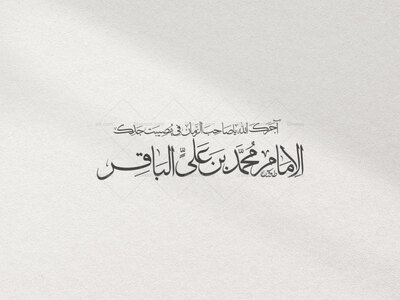 آجرک الله یا صاحب الزمان فی مصیبت جدک
الإمام محمد بن علیٍّ الباقر